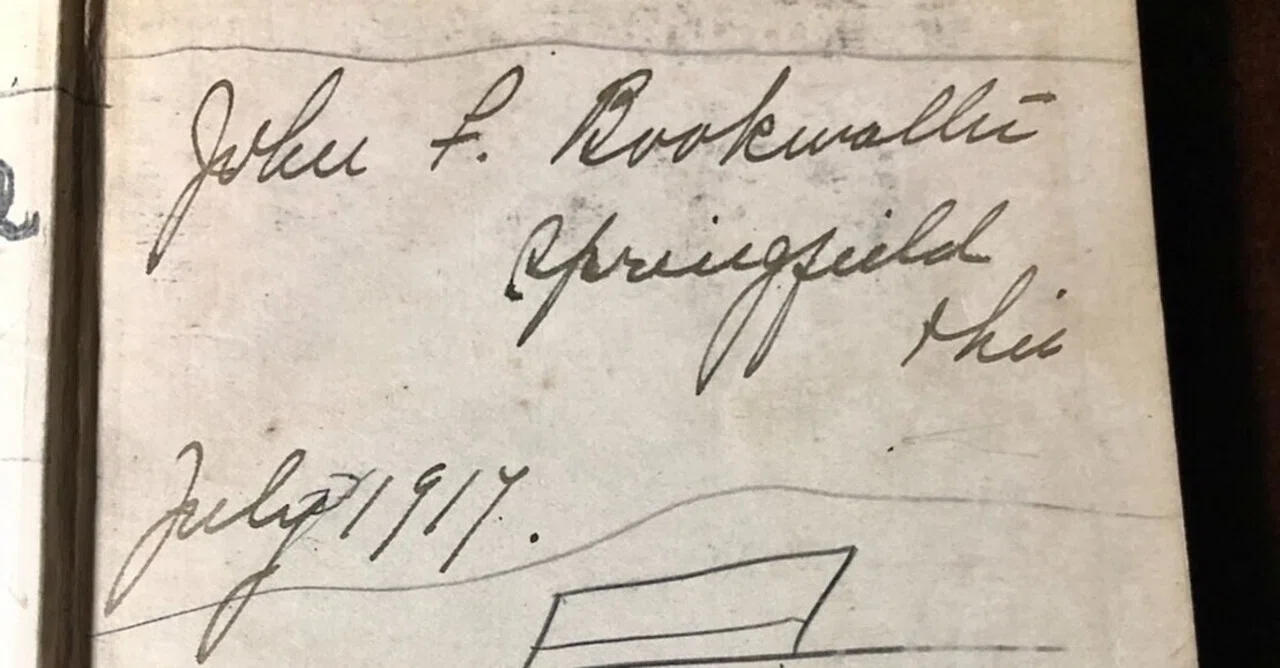 John F. Bookwalter
Springfield
Ohio
July 1917.